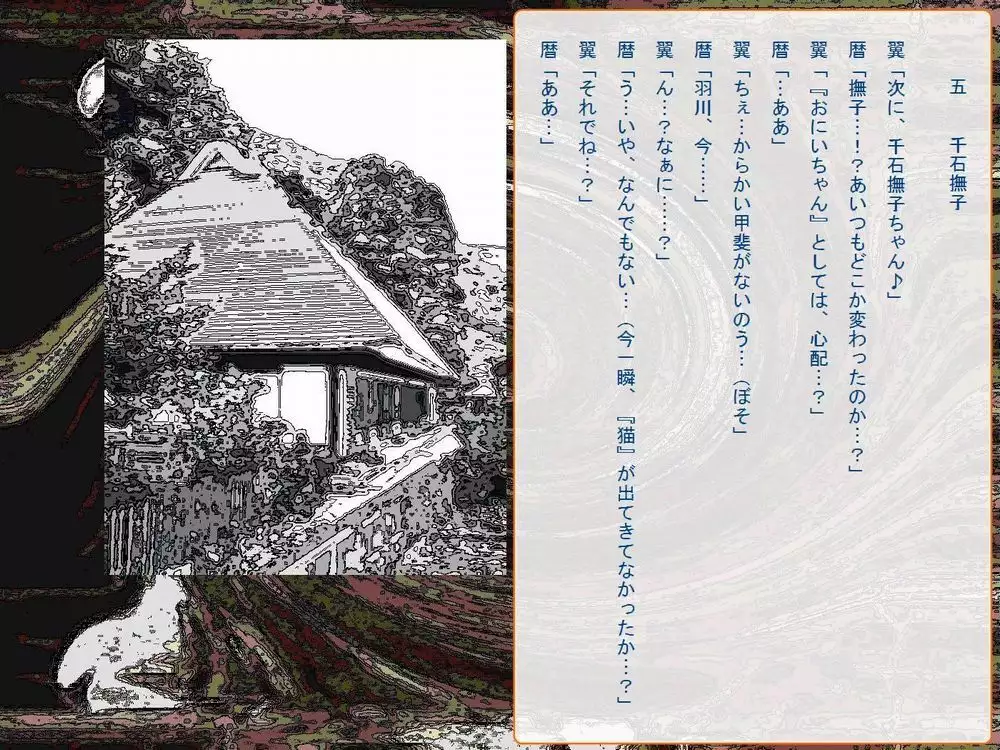 五　千石撫子
翼「次に、千石撫子ちゃん♪」
暦「撫子…！？あいつもどこか変わったのか…？」
翼「『おにいちゃん』としては、心配…？」
暦「…ああ」
翼「ちぇ…からかい甲斐がないのう…（ぼそ」
暦「羽川、今……」
翼「ん…？なぁに……？」
暦「う…いや、なんでもない…（今一瞬、『猫』が出てきてなかったか…？」
翼「それでね…？」
暦「ああ…」